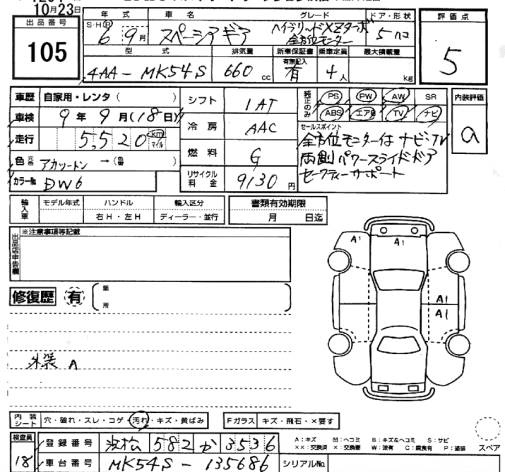 10月23日
出品番号
105
年式 車名 グレード ドア・形状
S・H・R 6年9月 スペーシアギア ハイブリッドXZターボ 全方位モニター 5ハコ
評価点
5
型式 排気量 新車保証書 乗車定員 最大積載量
4AA-MK54S 660cc 有無記入 有 4人 kg
車歴 自家用・レンタ( )
車検 9年9月(18日)
走行 5,520 km マイル
色 元
カラーNo DW6
シフト 1AT
冷房 AAC
燃料 G
リサイクル料金 9130円
純正のみ
PS PW AW SR
ABS エアB TV ナビ
セールスポイント
全方位モニターはナビ・TV
両側パワースライドドア
セーフティーサポート
内装評価
a
輸入車 モデル年式 ハンドル 輸入区分
右H・左H ディーラー・並行
書類有効期限
月 日迄
出品店申告欄
※注意事項等記載
修復歴 有 箇所
外装 A
A1 A1
A1
A1
内装シート 穴・破れ・スレ・コゲ・汚れ・キズ・黄ばみ
Fガラス キズ・飛石・×要す
検査員
18
登録番号 浜松 582 か 3536
車台番号 MK54S-135686
シリアルNo.
A:キズ U:ヘコミ B:キズ&ヘコミ S:サビ
××:交換済 ×:要交換 W:波有 C:腐食有 P:塗装
スペア